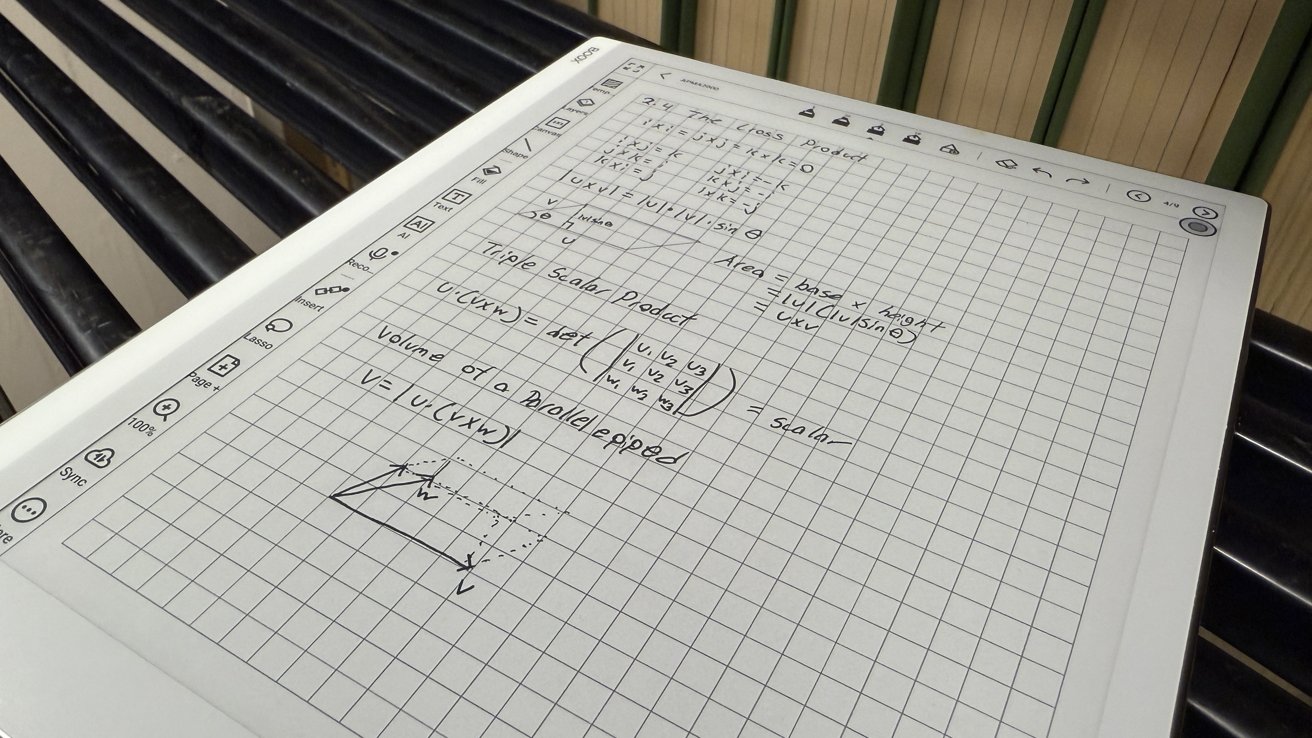 BOOX
APMA2000
4/9
Layers
Canvas
Shape
Fill
Text
AI
Reco...
Insert
Lasso
Page +
100%
Sync
2.4 The Cross Product
i x i = j x j = k x k = 0
i x j = k    j x i = -k
j x k = i    k x j = -i
k x i = j    i x k = -j
|u x v| = |u| • |v| • sin θ
v
θ |v| sin θ
u
Area = base x height
= |u| (|v| sin θ)
= u x v
Triple Scalar Product
u · (v x w) = det (| u₁ u₂ u₃ |
v₁ v₂ v₃
w₁ w₂ w₃ |) = scalar
Volume of a Parallelepiped
V = | u · (v x w) |
w
v